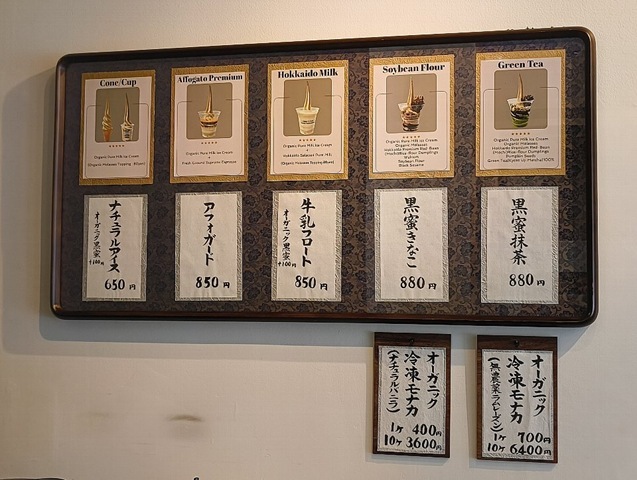 Cone/Cup
Organic Pure Milk Ice Cream
(Organic Molasses Topping +85yen)
Affogato Premium
Organic Pure Milk Ice Cream
Hokkaido Milk
Organic Pure Milk Ice Cream
+
Hokkaido Selected Pure Milk
(Organic Molasses Topping +85yen)
Soybean Flour
Organic Pure Milk Ice Cream
Organic Molasses
Hokkaido Premium Red-Bean
(Mochi)Rice-flour Dumplings
Walnuts
Soybean Flour
Black Sesame
Green Tea
Organic Pure Milk Ice Cream
Organic Molasses
Hokkaido Premium Red-Bean
(Mochi)Rice-flour Dumplings
Pumpkin Seeds
ナチュラルアイス
オーガニック黒蜜
+100円
650円
アフォガード
850円
牛乳フロート
オーガニック黒蜜
+100円
850円
黒蜜きなこ
880円
黒蜜抹茶
880円
オーガニック
冷凍モナカ
(ナチュラルバニラ)
1ヶ 400円
10ヶ 3600円
オーガニック
冷凍モナカ
(無農薬ラムレーズン)
1ヶ 700円
10ヶ 6400円